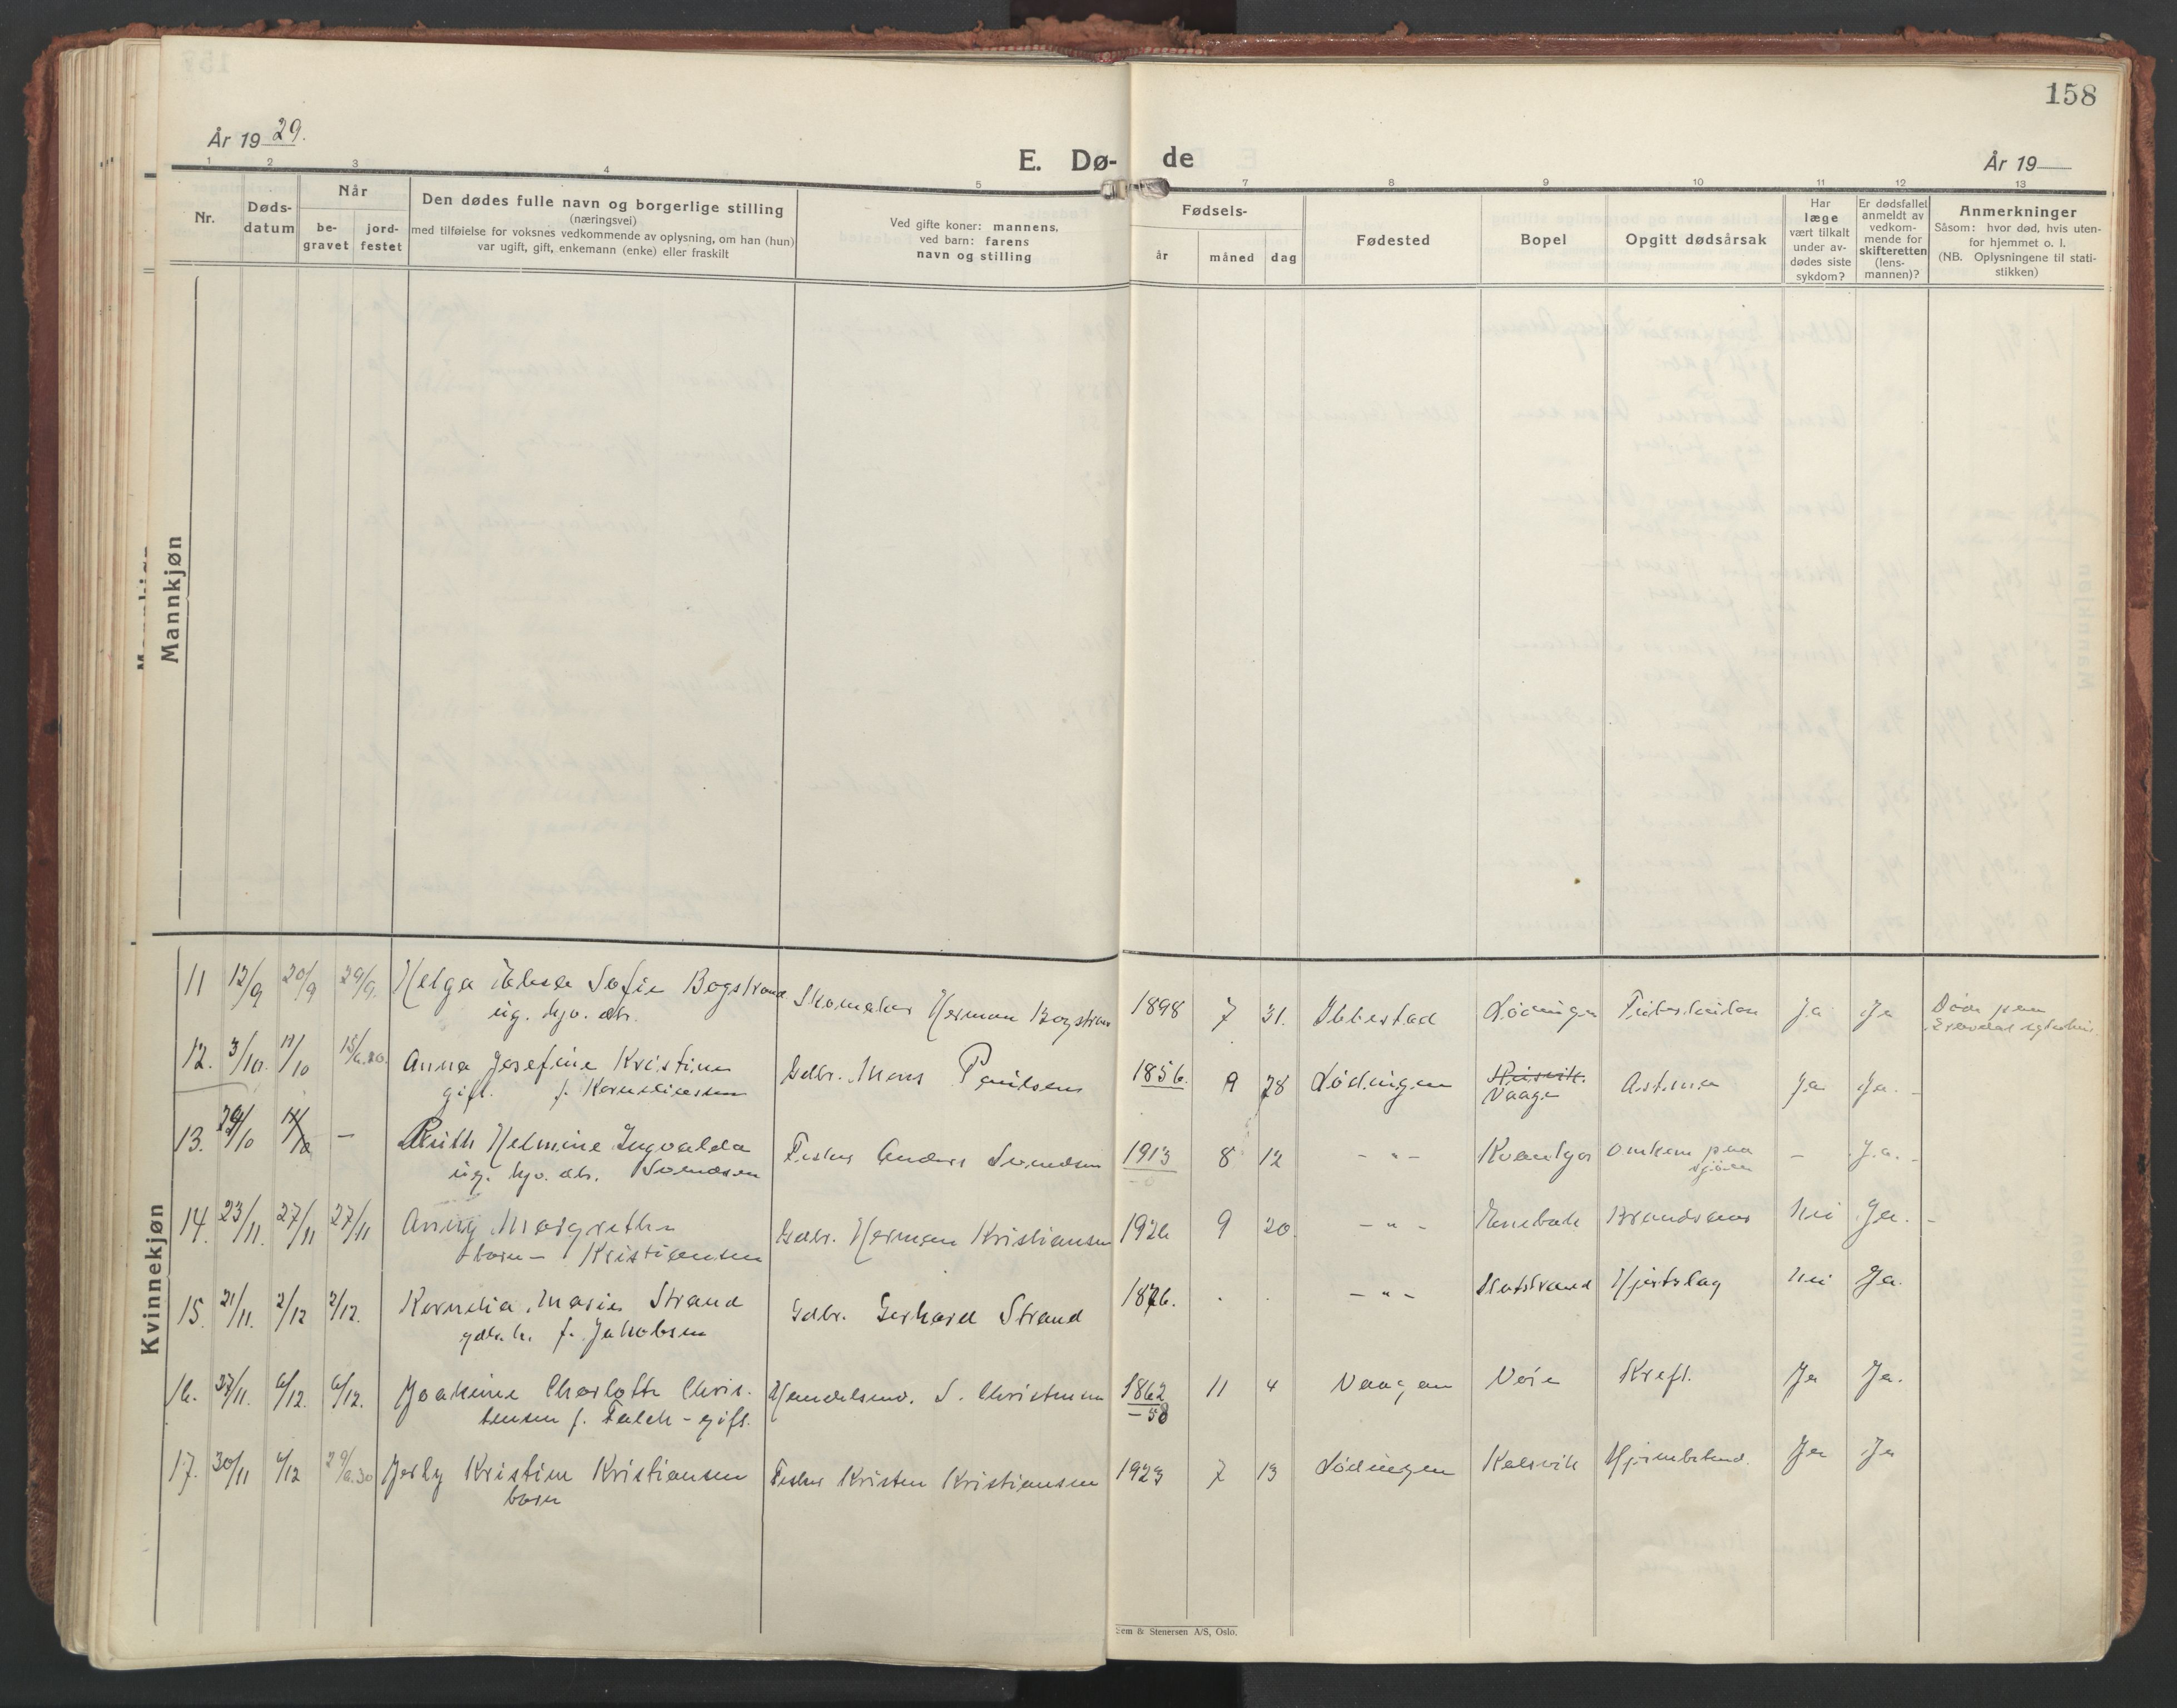 158
År 1929.
E. Dø-de
År 19
1 2 3 4 5 7 8 9 10 11 12 13
Nr.
Døds-
datum
Når
be-
gravet
jord-
festet
Den dødes fulle navn og borgerlige stilling
(næringsvei)
med tilføielse for voksnes vedkommende av oplysning, om han (hun)
var ugift, gift, enkemann (enke) eller fraskilt
Ved gifte koner: mannens,
ved barn: farens
navn og stilling
Fødsels-
år
måned
dag
Fødested
Bopel
Opgitt dødsårsak
Har
læge
vært tilkalt
under av-
dødes siste
sykdom?
Er dødsfallet
anmeldt av
vedkom-
mende for
skifteretten
(lens-
mannen)?
Anmerkninger
Såsom: hvor død, hvis uten-
for hjemmet o. l.
(NB. Oplysningene til stati-
stikken)
Mannkjøn
Kvinnekjøn
11 12/9 20/9 29/9. Helga Sofie Bogstrand Skomaker Herman Bogstrand 1898 7 31. Ibbestad Lødingen Ja Ja Død paa
ug. hjv. db.
12. 3/10. 11/10 Anna Josefine Kristine Gdbr. Mons Paulsen 1856. 9 28 Lødingen Astma Ja Ja.
gift. f. Korneliussen Vaage
13. 29/10 — Ruth Helmine Ingvalda Fisker Anders Svendsen 1913 8 12 — " — omkom paa — Ja.
ug. hjv. db. Svendsen sjøen
14. 23/11. 27/11 27/11 Anny Margrethe Gdbr. Herman Kristiansen 1926 9 20. — " — Rinnbak Brandsaar Nei Ja.
barn — Kristiansen
15. 21/11. 2/12 2/12. Kornelia Marie Strand Gdbr. Gerhard Strand 1876. — " — Hjerteslag Nei Ja.
f. Jakobsen
16. 27/11. 6/12. 6/12. Joakime Charlotte Chris- Handelsmd. S. Christensen 1862 11 4 Vaagan Kreft. Ja Ja.
tensen f. Falch - gift. —58
17. 30/11 6/12 Jerly Kristine Kristiansen Fisker Kristen Kristiansen 1923 7 13 Lødingen Kalsvik Ja Ja
barn
Sem & Stenersen A/S, Oslo.